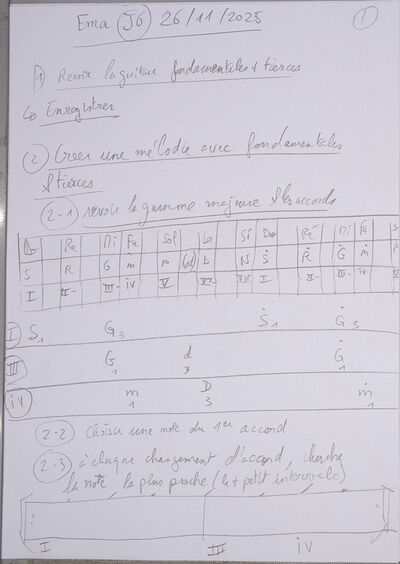 Ema J6 26/11/2025
1
1 Revoir la guitare fondamentales + tierces
Enregistrer
2 Créer une mélodie avec fondamentales
& tierces
2-1 revoir la gamme majeure & les accords
Do Re Mi Fa Sol La Si Do Ré Mi Fa S
S R G m P (d) D N Ṡ Ṙ Ġ ṁ
I II- III- iv V VI- VII I II- III- iv
I S1 G3 Ṡ1 Ġ3
III G1 d3 Ġ1
iv m1 D3 ṁ1
2-2 Choisir une note du 1er accord
2-3 à chaque changement d'accord, cherche
la note la plus proche (le + petit intervalle)
I III iv